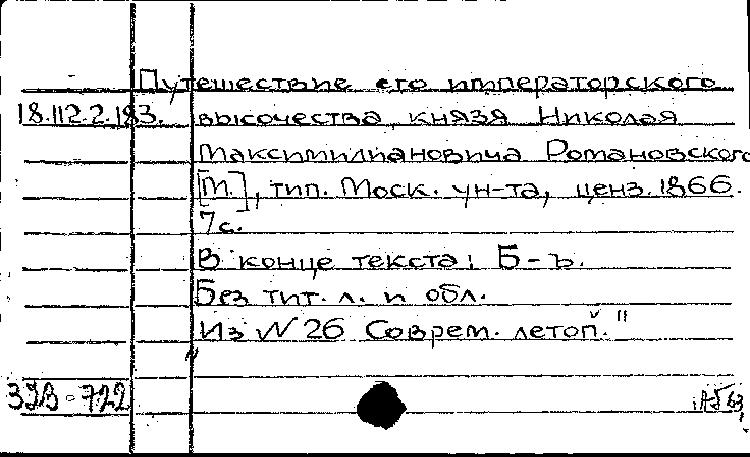 Путешествие его императорского
18.112.2.183. высочества князя Николая
Максимилиановича Романовского
[М.], тип. Моск. ун-та, ценз. 1866.
7с.
В конце текста: Б-ъ.
Без тит. л. и обл.
Из N 26 Соврем. летоп."
722